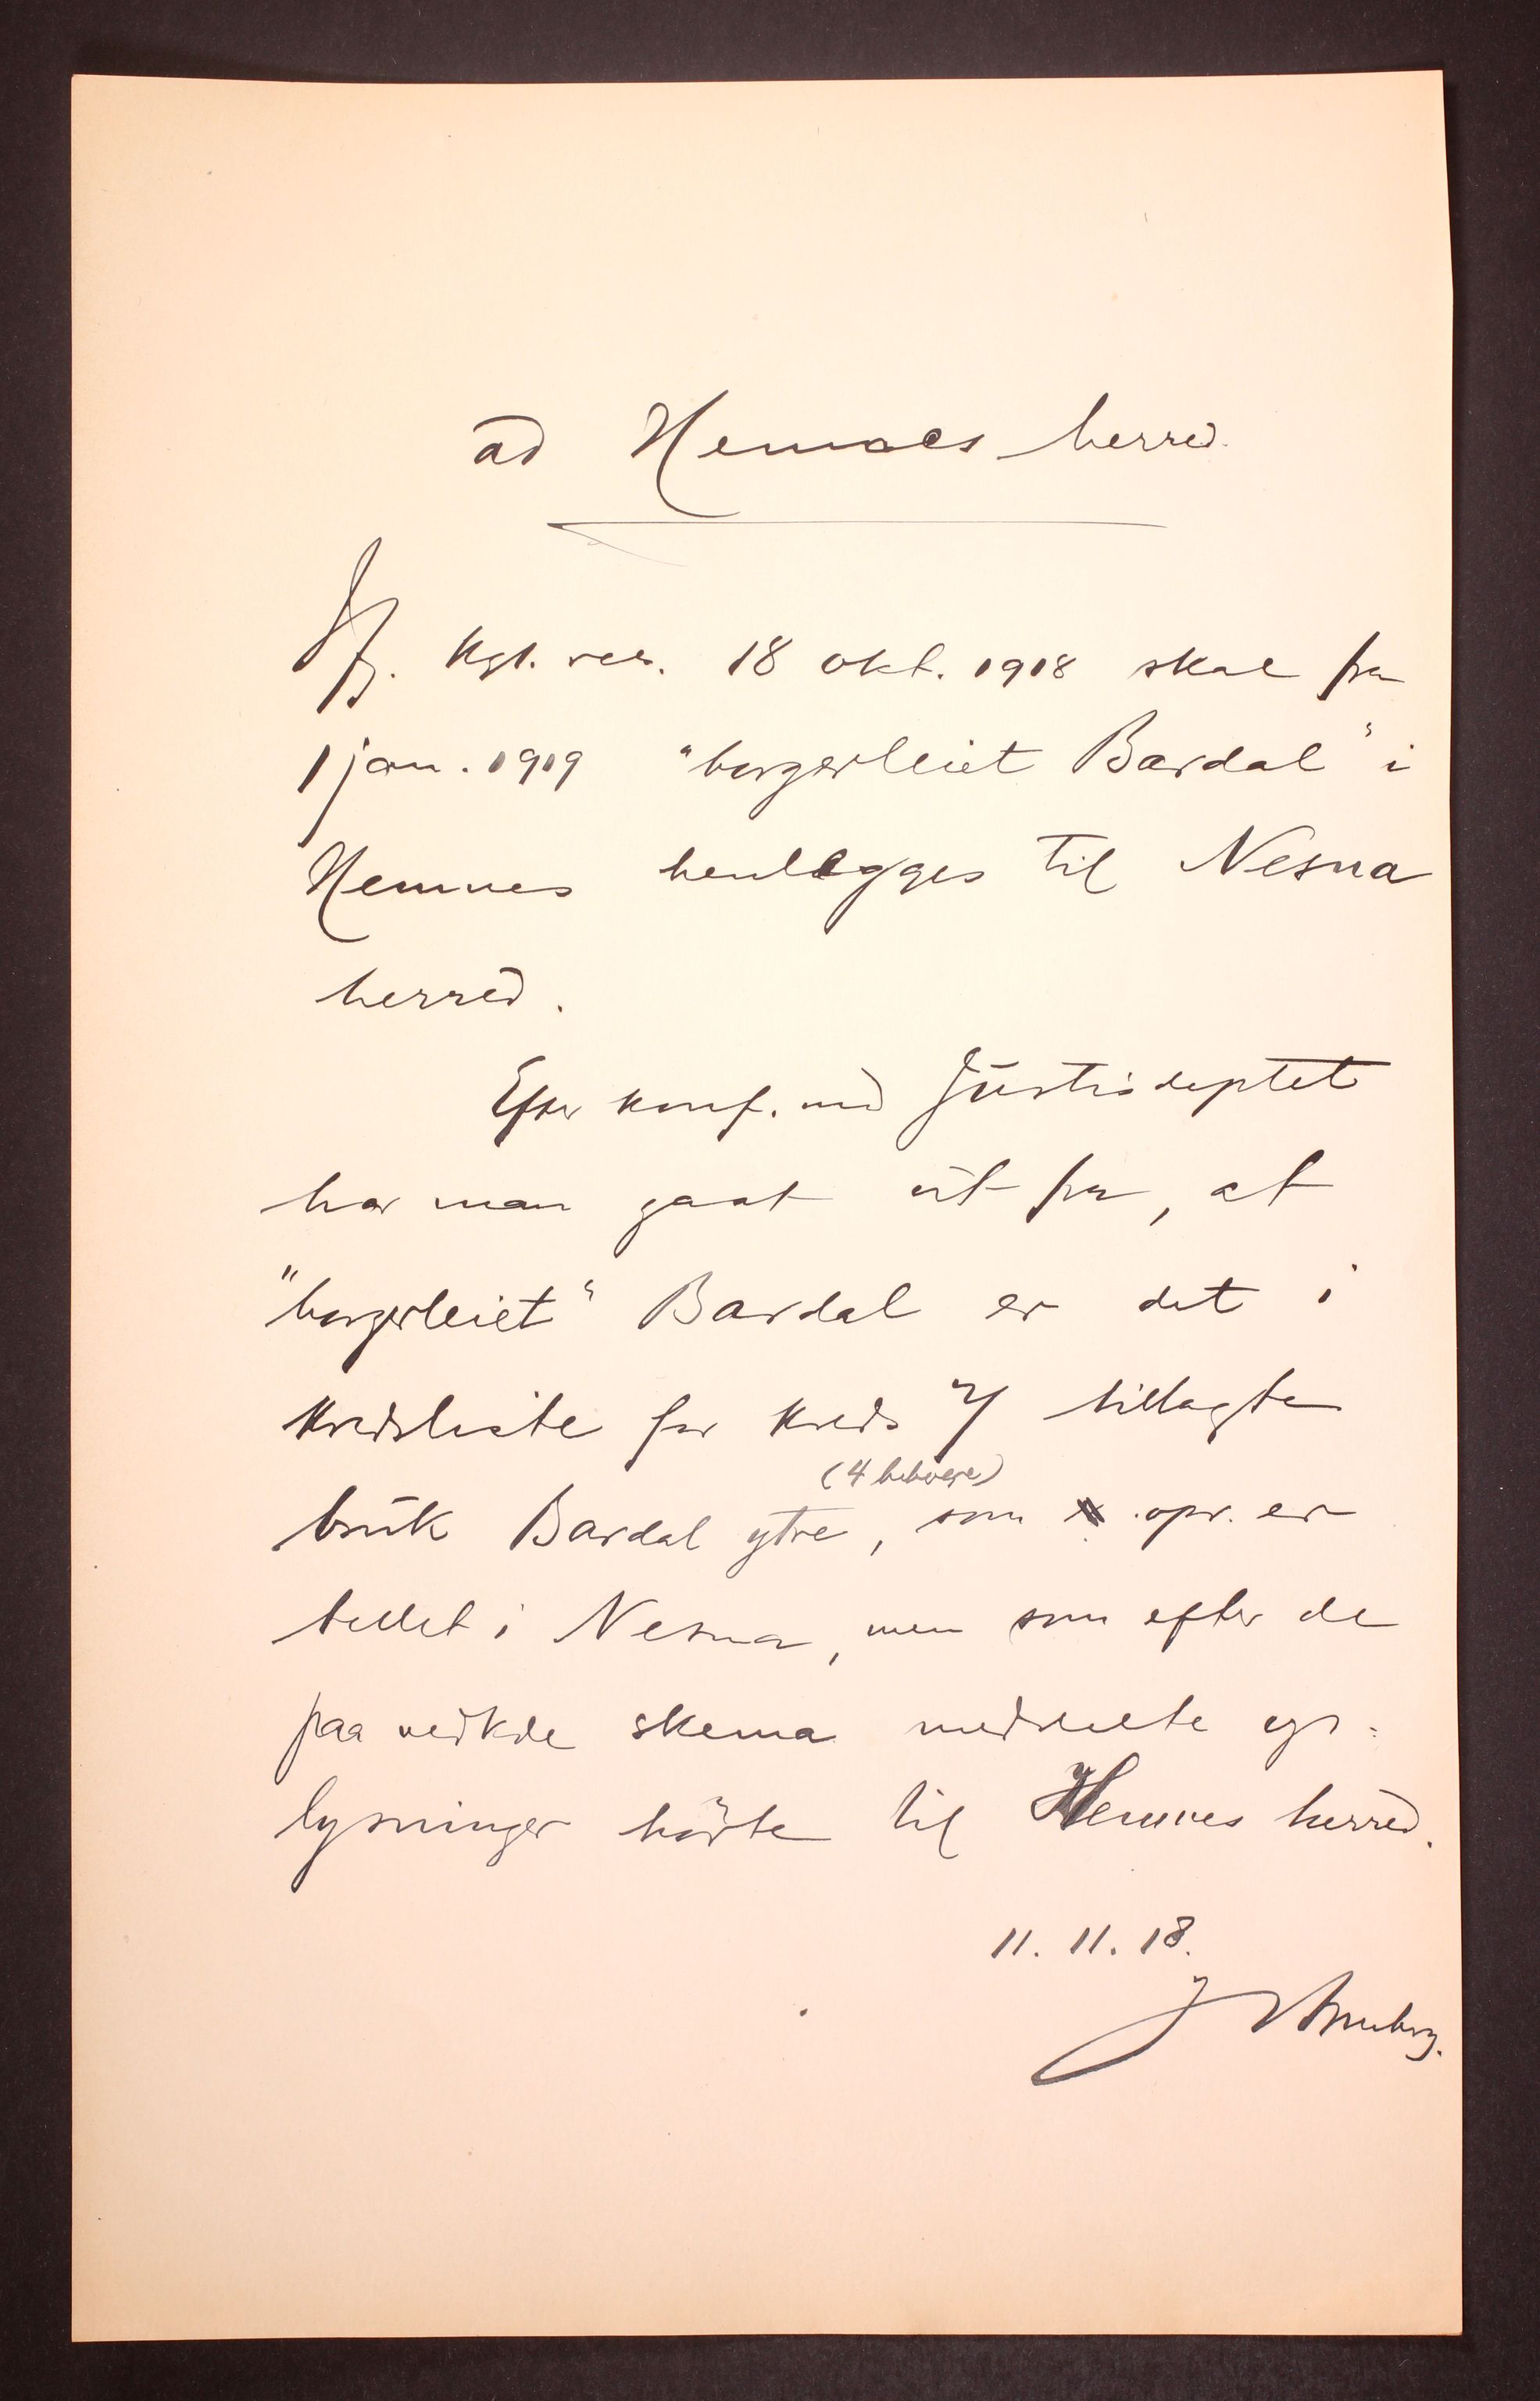 ad Hemnes herred.
Ifg. kgl. res. 18 okt. 1918 skal fra
1 jan. 1919 "borgerleiet Bardal" i
Hemnes henlegges til Nesna
herred.
Efter konf. med Justisdeptet
har man gaat ut fra, at
"borgerleiet" Bardal er det i
kredsliste for kreds 7 tillagte
(4 beboere)
bruk Bardal ytre, som opr. er
tellet i Nesna, men som efter de
paa vedkde skema meddelte op=
lysninger hørte til Hemnes herred.
11. 11. 18.